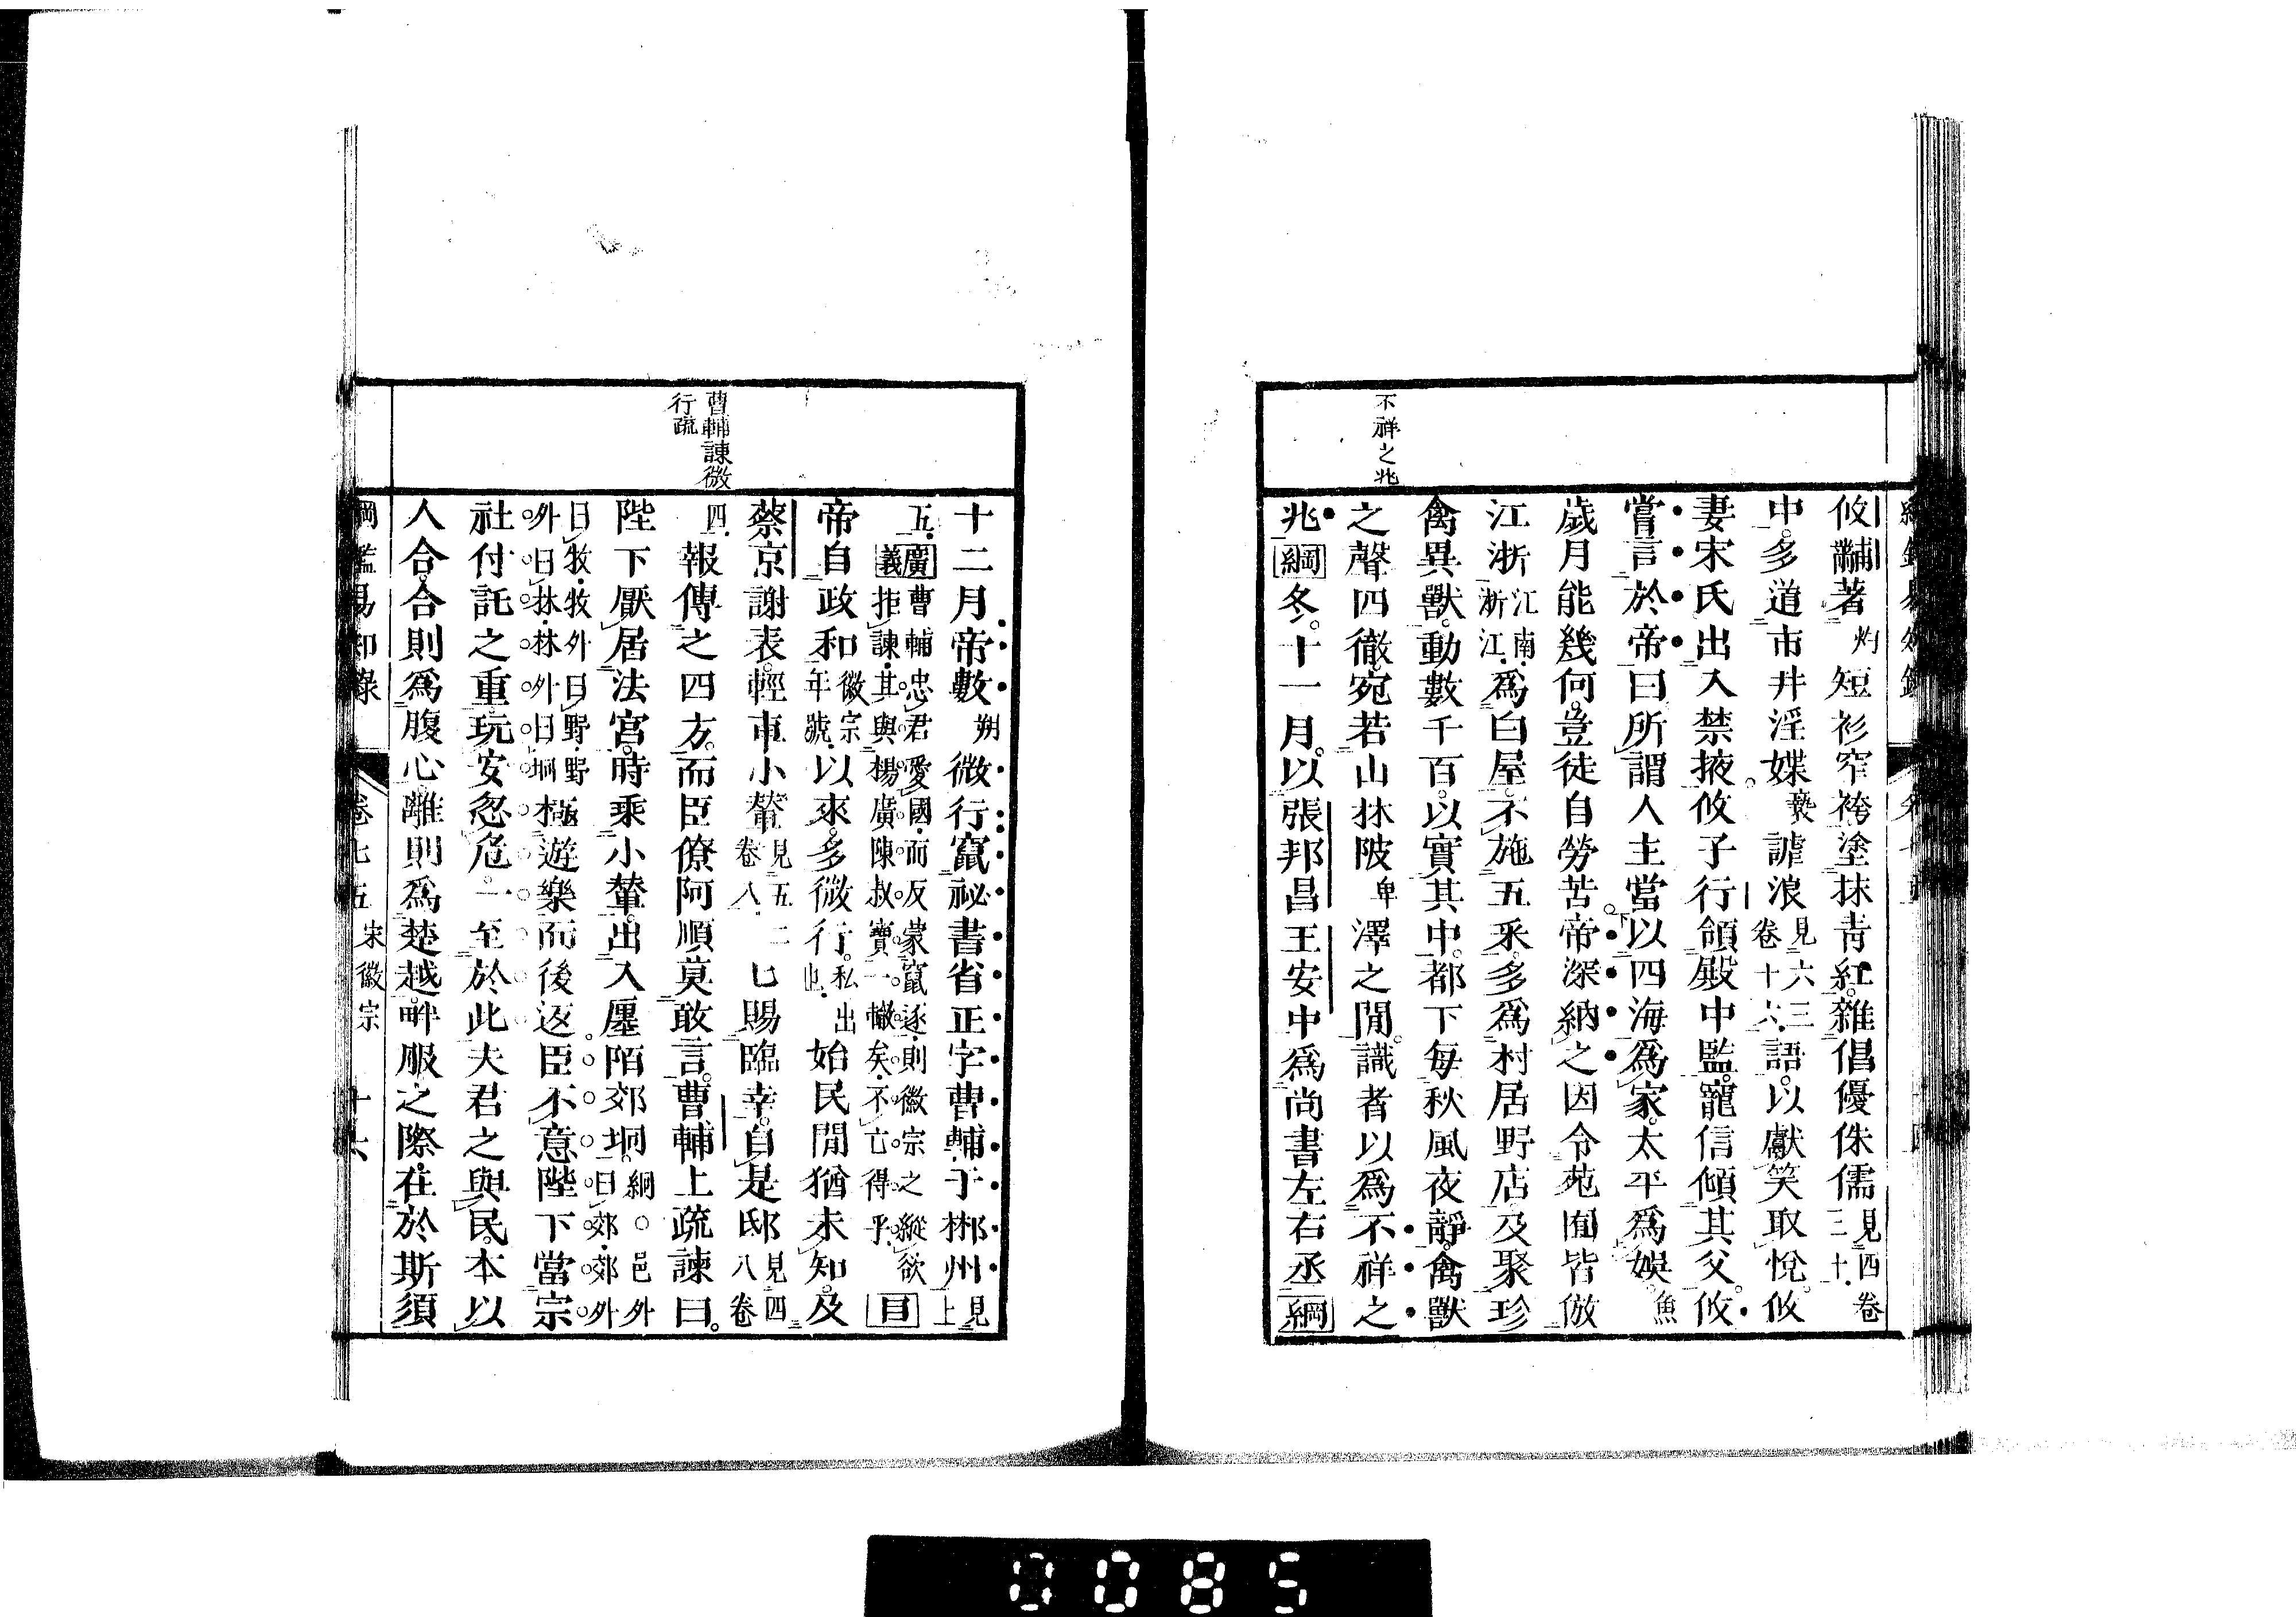 不祥之兆
攸黼著灼短衫窄袴塗抹青紅雜倡優侏儒見四卷三十
中多道市井淫媟褻謔浪見六三卷十六語以獻笑取悅攸
妻宋氏出入禁掖攸子行領殿中監寵信傾其父攸
嘗言於帝曰所謂人主當以四海為家太平為娛魚
歲月能幾何豈徒自勞苦帝深納之因令苑囿皆倣
江浙江南浙江為白屋不施五采多為村居野店及聚珍
禽異獸動數千百以實其中都下每秋風夜靜禽獸
之聲四徹宛若山林陂卑澤之閒識者以為不祥之
兆綱冬十一月以張邦昌王安中為尚書左右丞綱
曹輔諫微
行疏
十二月帝數朔微行竄祕書省正字曹輔于郴州見上
五廣義曹輔忠君愛國而反蒙竄逐則徽宗之縱欲拒諫其與楊廣陳叔寶一轍矣不亡得乎目
帝自政和徽宗年號以來多微行私出也始民閒猶未知及
蔡京謝表輕車小輦見五二卷八七賜臨幸自是邸見四八卷
四報傳之四方而臣僚阿順莫敢言曹輔上疏諫曰
陛下厭居法宮時乘小輦出入廛陌郊坰絅○邑外曰郊郊外
曰牧牧外曰野野外曰林林外曰坰極遊樂而後返臣不意陛下當宗
社付託之重玩安忽危一至於此夫君之與民本以
人合合則為腹心離則為楚越畔服之際在於斯須
綱鑑易知錄 卷七五 宋徽宗 十六
0085